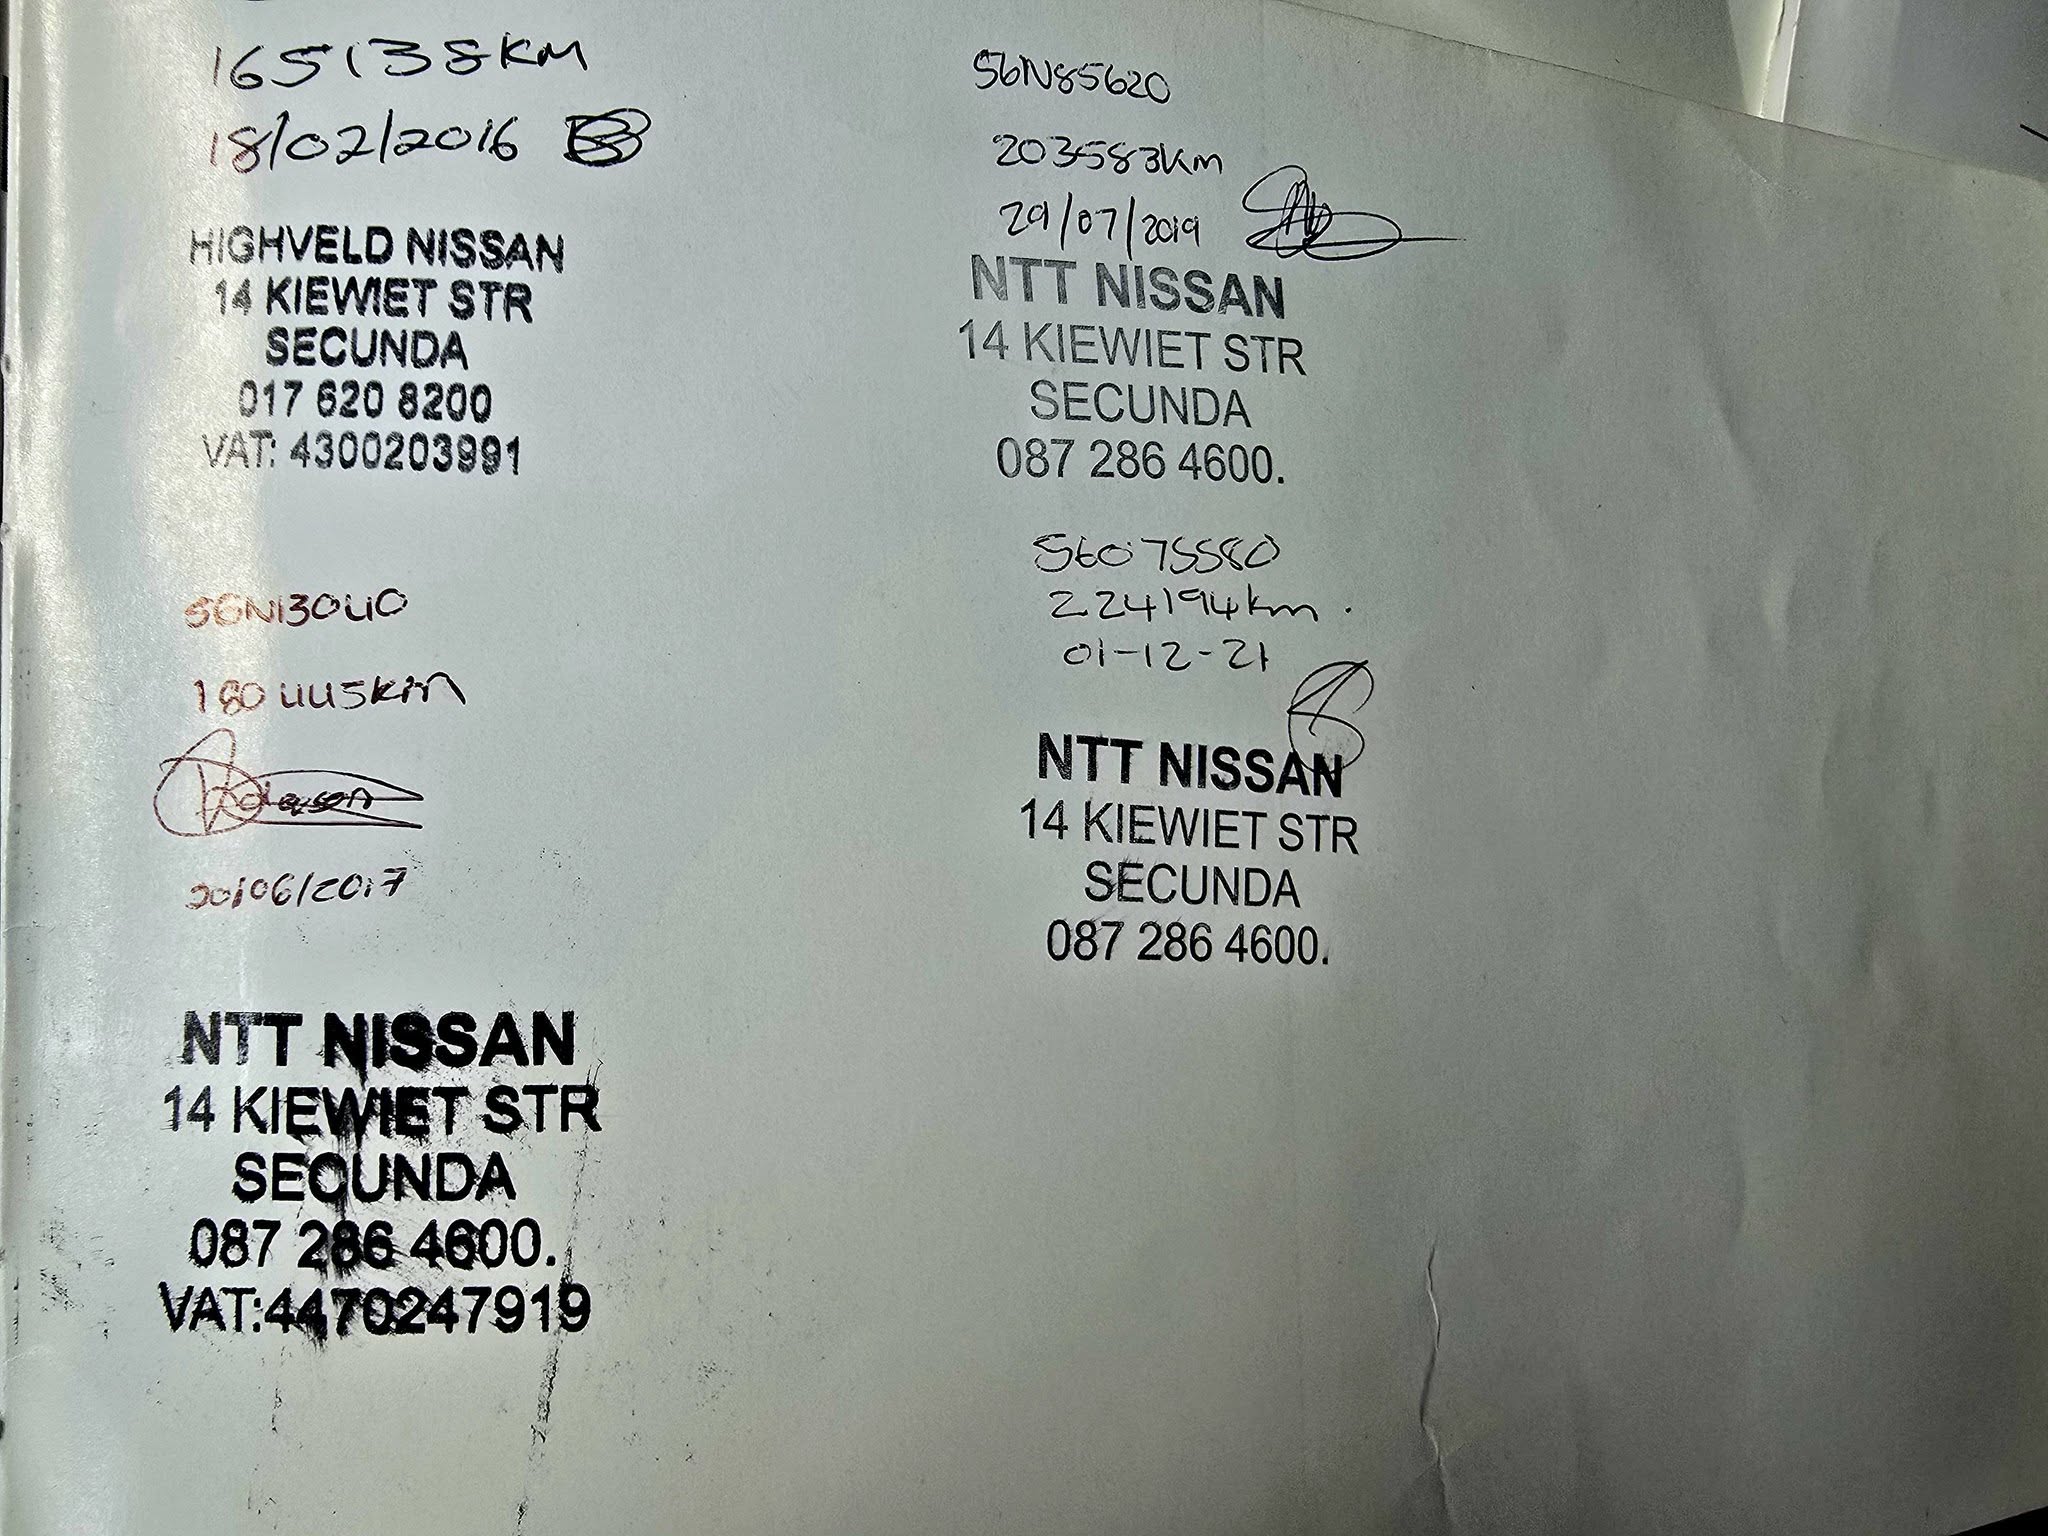 165138KM
18/02/2016
HIGHVELD NISSAN
14 KIEWIET STR
SECUNDA
017 620 8200
VAT: 4300203991
56N13040
180445km
20/06/2017
NTT NISSAN
14 KIEWIET STR
SECUNDA
087 286 4600.
VAT:4470247919
56N85620
203583km
29/07/2019
NTT NISSAN
14 KIEWIET STR
SECUNDA
087 286 4600.
56075580
224194km.
01-12-21
NTT NISSAN
14 KIEWIET STR
SECUNDA
087 286 4600.